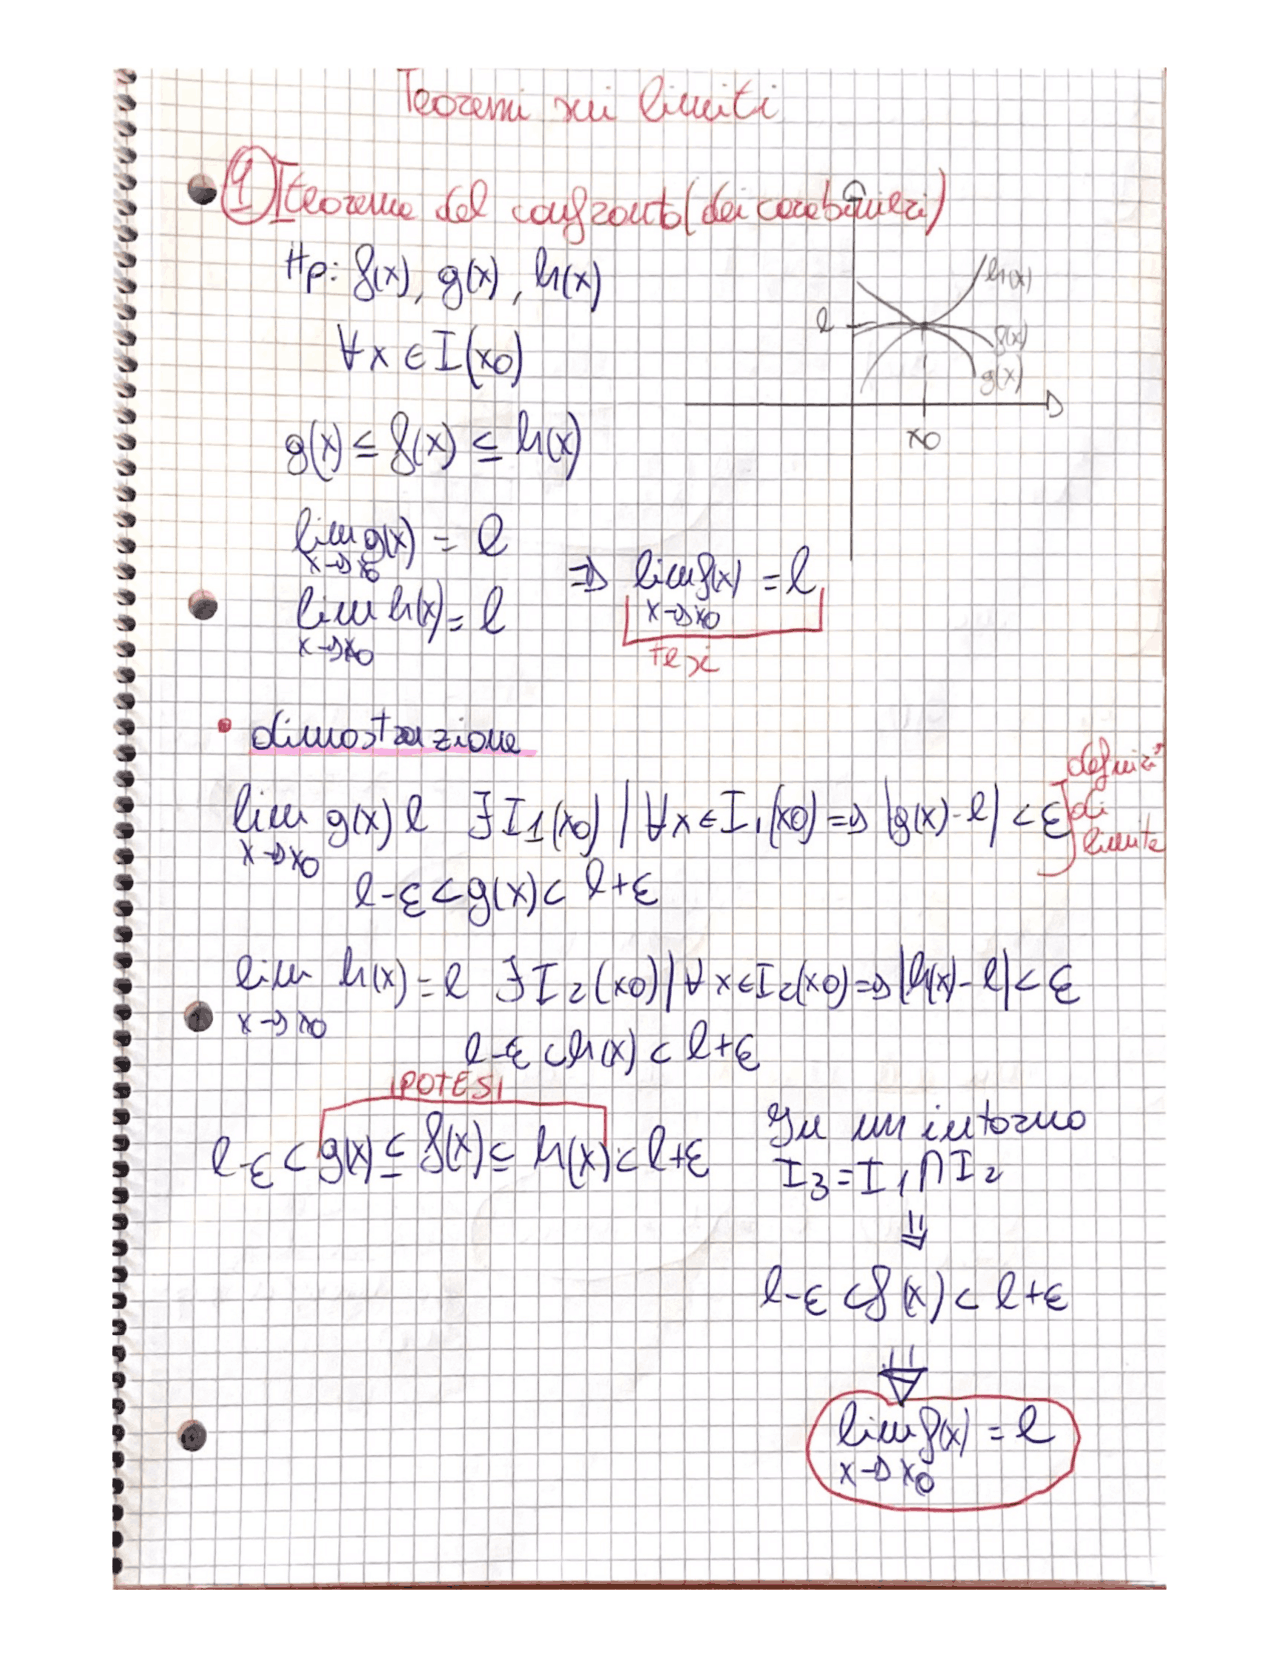 Teoremi sui limiti
① I teorema del confronto (dei carabinieri)
Hp: f(x), g(x), h(x)
∀x ∈ I(x0)
g(x) ≤ f(x) ≤ h(x)
h(x)
l
f(x)
g(x)
x0
lim g(x) = l
x→x0
lim h(x) = l
x→x0
⇒ lim f(x) = l
x→x0
Tesi
• dimostrazione
lim g(x) l ∃ I1(x0) / ∀x ∈ I1(x0) ⇒ |g(x)-l| < ε
x→x0
definiz°
di
limite
l-ε < g(x) < l+ε
lim h(x) = l ∃ I2(x0) / ∀x ∈ I2(x0) ⇒ |h(x)-l| < ε
x→x0
l-ε < h(x) < l+ε
IPOTESI
l-ε < g(x) ≤ f(x) ≤ h(x) < l+ε
In un intorno
I3 = I1 ∩ I2
⇓
l-ε < f(x) < l+ε
⇓
lim f(x) = l
x→x0